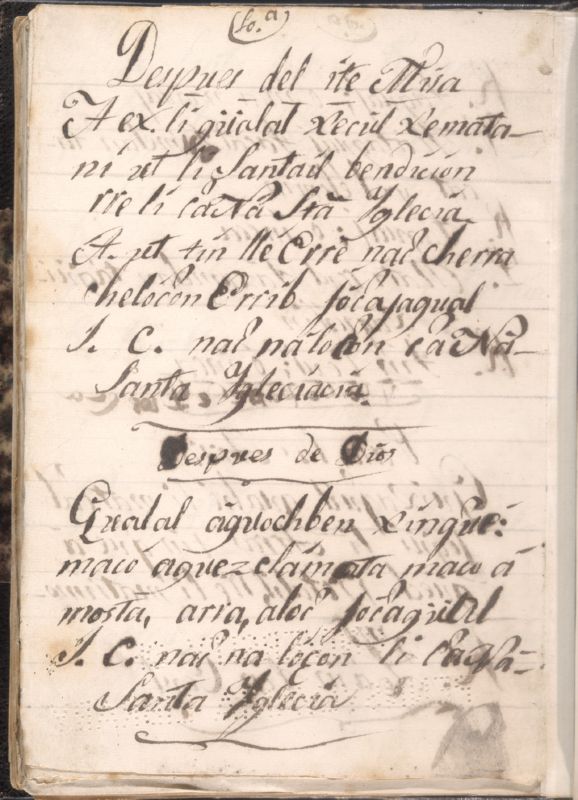 (fo.ª)
Despues del ite Misa
A ex. li gûalal xecûl xemata-
ni ut li Santaîl bendicion
rre li caNa Sta Yglecia
A. ut tin lle Erre nac cherra
chelocon Errib jocajagual
J. C. nac nalocon ca Nâ-
Santa Ygleciacia.
Despues de Dios
Gualal aguochben xingue:
maco aguezclamata maco â
mosta, arra, aloc jocagûal
J. C. nac na locon li caNâ-
Santa Yglecia